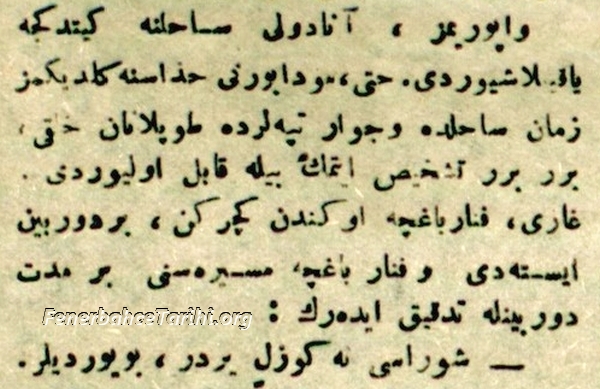 واپوریمز ، آنادولی ساحلنه کیتدکجه
یاقینلاشیوردی. حتی، مودابورنی حذاسنه کلدیکمز
زمان ساحلده وجوار تپه‌لرده طوپلانان خلقی،
برر برر تشخیص ایتمك بیله قابل اولیوردی .
غازی، فنارباغچه اوکندن کچرکن ، بردوربین
ایسته‌دی و فنار باغچه مسیره‌سنی بر مدت
دوربینله تدقیق ایده‌رك :
FenerbahceTarihi.org
— شوراسی نه کوزل یردر ، بویوردیلر.